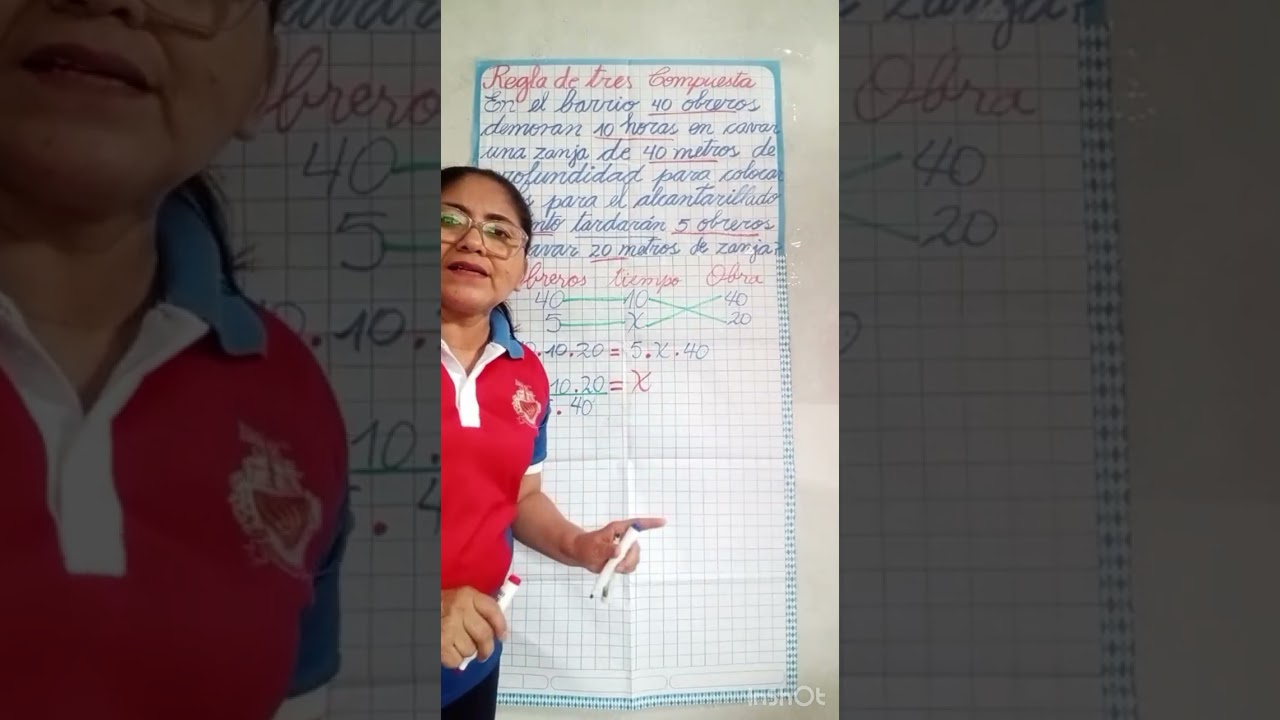 Regla de tres Compuesta
En el barrio 40 obreros
demoran 10 horas en cavar
una zanja de 40 metros de
ofundidad para coloca
para el alcantarillado
nto tardarán 5 obreros
avar 20 metros de zanja?
breros tiempo Obra
40 10 40
5 X 20
.10.20 = 5.X.40
10.20 = X
. 40
InShOt